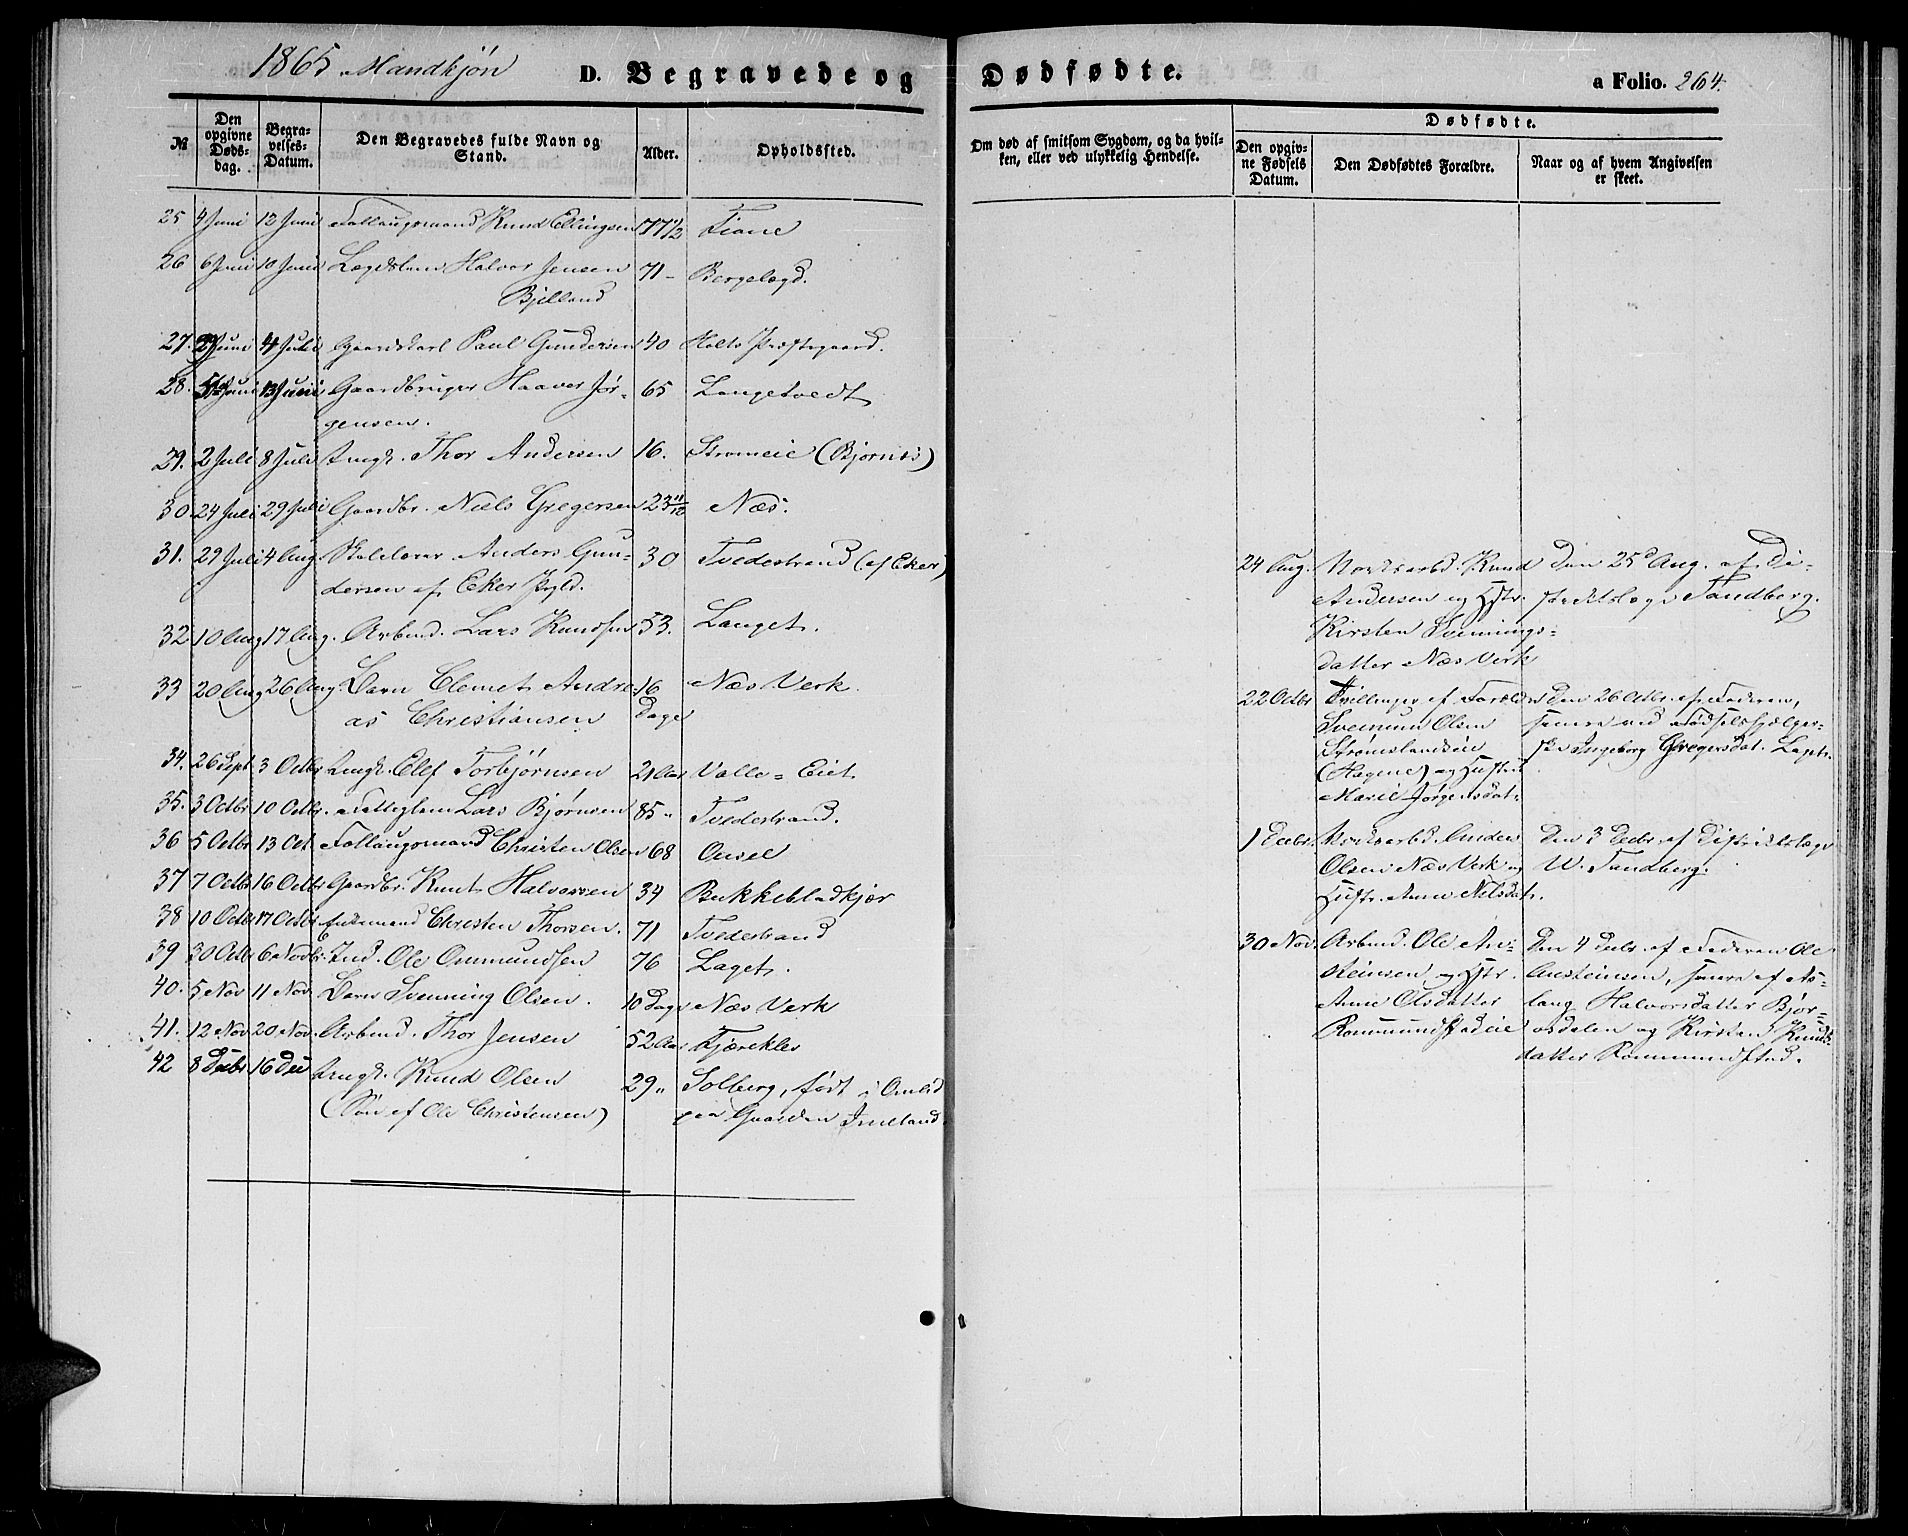 1865 Mandkjøn D. Begravede og Dødfødte. a Folio. 264.
№
Den opgivne Døds-dag.
Begra-velses-Datum.
Den Begravedes fulde Navn og Stand.
Alder.
Opholdssted.
Om død af smitsom Sygdom, og da hvil-
ken, eller ved ulykkelig Hendelse.
Dødfødte.
Den opgiv-ne Fødsels Datum.
Den Dødfødtes Forældre.
Naar og af hvem Angivelsen er skeet.
25 4 Juni 12 Juni Knud Ellingsen 77 1/2 Tiane
26 6 Juni 10 Juni Lægdslem Halvor Jensen 71 - Bergelægd.
Bjelland
27. Juni 4 Juli Gaardskarl Paul Gundersen 40 Holts Præstegaard.
28. Juni 13 Gaardbruger Haaver Jør- 65 Langetvedt
gensen.
29. 2 Juli 8 Juli Ungk. Thor Andersen 16. Strømeie (Bjørnes)
30. 24 Juli 29 Juli Gaardbr. Niels Gregersen 23 Næs.
31. 29 Juli 4 Aug. Skolelærer Anders Gun- 30 Tvedestrand (af Eker)
dersen af Eker Pgld.
32 10 Aug 17 Aug. Arbmd. Lars Knudsen 53. Langet.
33 20 Aug 26 Aug. Barn Clemet Andre- 16 Dage Næs Verk.
as Christiansen
34. 26 Sept 3 Octbr Ungk. Elef Torbjørnsen 21 Aar Valle-Eiet
35. 3 Octbr 10 Octbr. Fattiglem Lars Bjørnsen 85 " Tvedestrand.
36 5 Octbr 13 Oct Christen Olsen 68
37 7 Octbr 16 Octbr Gaardbr. Knut Halvorsen 34 Bukkebladkjær
38 10 Octbr 17 Octbr Enkemand Christen Thorsen. 71 Tvedestrand
39 30 Octbr 6 Novbr. Ind. Ole Ommundsen 76 Laget.
40. 5 Nov 11 Nov. Barn Svenning Olsen. 10 Dage Næs Verk
41. 12 Nov 20 Nov. Arbmd. Thor Jensen 52 Aar Kjærekles
42 8 Decbr 16 Dec Ungk. Knud Olsen 29 " Solberg, født i Omlid
(Søn af Ole Christensen) paa Gaarden
24 Aug. Knud
Andersen og Hstr.
Kirsten Svennings-
datter Næs Verk
Den 25 Aug. af Di-
striktslæge Tandberg.
22 Octbr Tvillinger af Forældre
Svennum Olsen
Strømslandseie
(Hagene) og Hustru
Marie Jørgensdat:
Den 26 Octbr. af Faderen,
senere ved Fødselshjælper-
ske Ingeborg Gregersdat.
1 Decbr.
Olsen Næs Verk og
Hustr. Anne Nilsdat.
Den 3 Decbr af Distriktslæge
W. Tandberg.
30 Nov. Arbmd. Ole An-
steinsen og Hstr.
Anne Olsdatter
Rommundstadeie
Den 4 Decbr af Faderen Ole
Ansteinsen, senere af As-
laug Halvorsdatter Bjør-
osdalen og Kirsten Knuds-
datter Rommundstad.